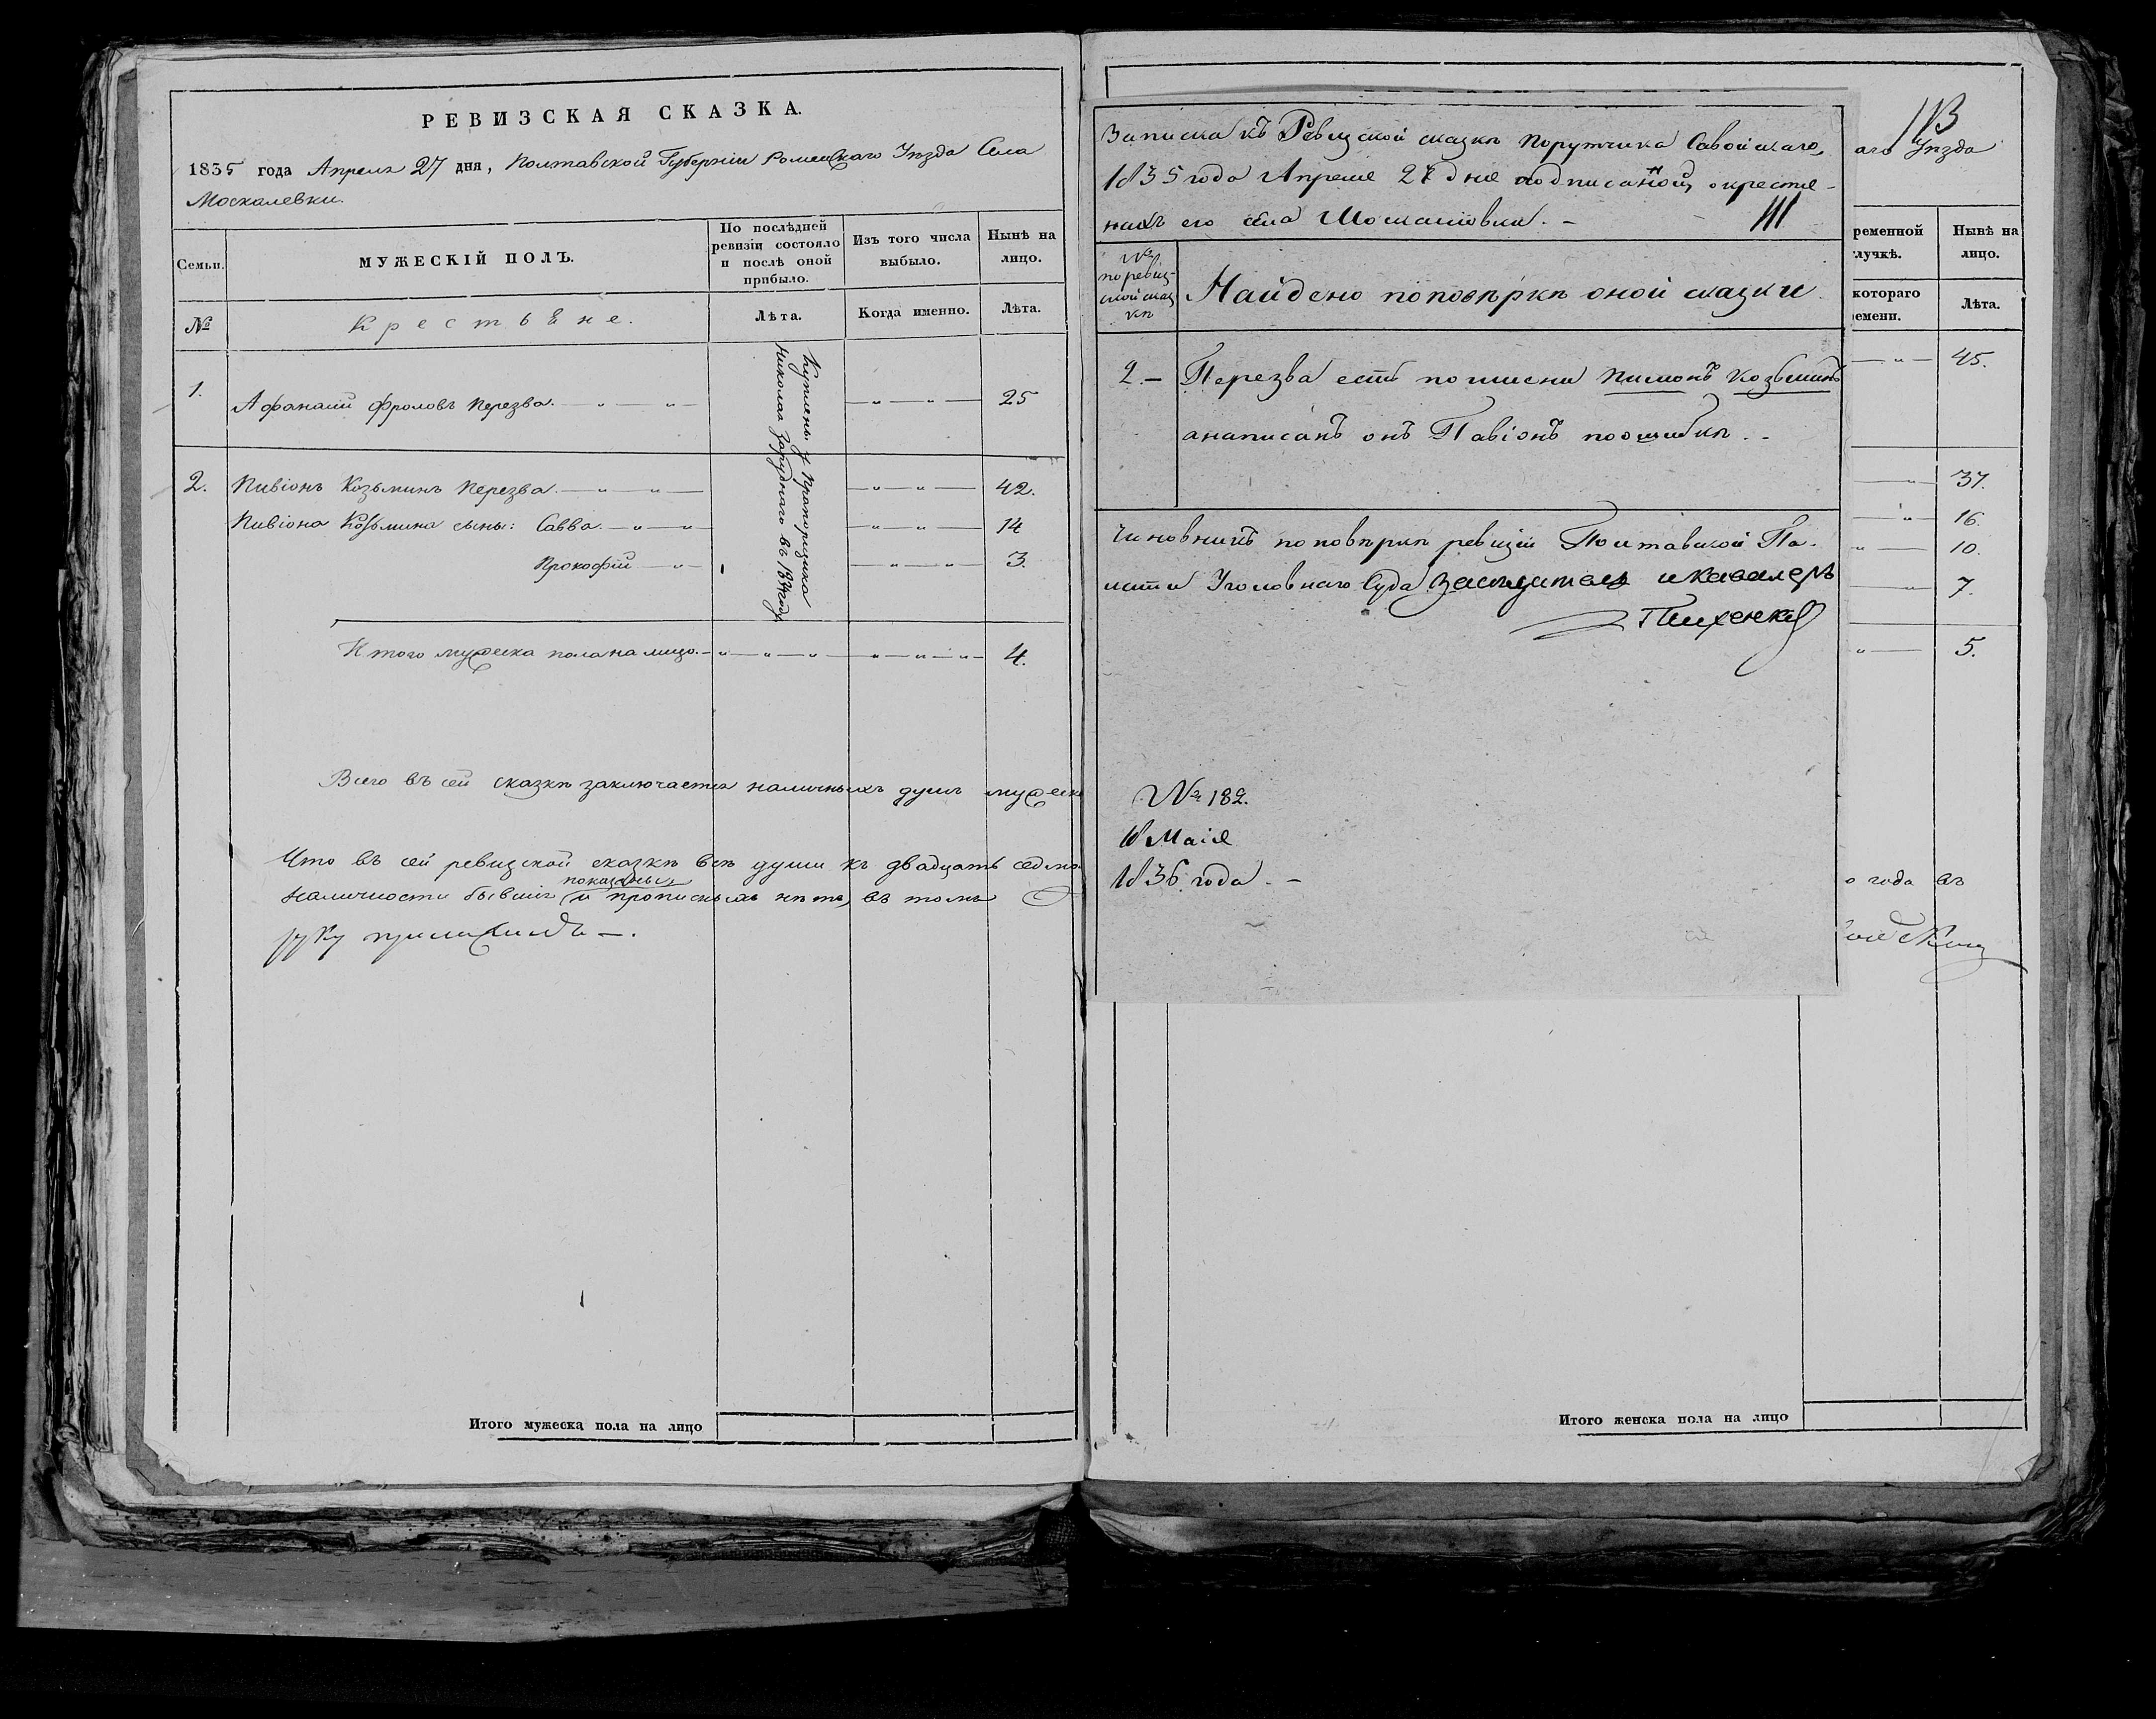 РЕВИЗСКАЯ СКАЗКА.
1835 года Апреля 27 дня, Полтавской Губерніи Роменскаго Уѣзда Села
Москалевки.
Семьи.
МУЖЕСКІЙ ПОЛЪ.
По послѣдней
ревизіи состояло
и послѣ оной
прибыло.
Изъ того числа
выбыло.
Нынѣ на
лицо.
№
Крестьяне.
Лѣта.
Когда именно.
Лѣта.
Куплены у Прапорщика
Николая Заруднаго въ 1834 году
1.
Афанасій Фроловъ Перезва. 25
2. Пивіонъ Козьминъ Перезва. 42.
Пивіона Козьмина сыны: Савва. 14
Прокофій 3.
Итого мужеска пола на лицо. 4.
Всего въ сей сказкѣ заключается наличныхъ душъ мужеск
Что въ сей ревизской сказкѣ всѣ души къ двадцать седмо
показаны
наличности бывшіе и прописныхъ нѣтъ, въ томъ
руку приложилъ.
Итого мужеска пола на лицо
Записка къ Ревизской сказкѣ Порутчика Савойскаго,
1835 года Апреля 27 дня подписанной, о крестья-
нахъ его села Москалевки.
№
по ревиз-
ской сказ
кѣ
Найдено по повѣркѣ оной сказки.
2. Перезва есть по имени Пимонъ Козьминъ
а написанъ онъ Павіонъ по ошибкѣ.
Чиновникъ по повѣркѣ ревизіи Полтавской Па-
латы Уголовнаго Суда Засѣдатель и кавалеръ
№ 182.
18 Маія
1836 года.
аго Уѣзда
ременной
лучкѣ.
Нынѣ на
лицо.
котораго
ремени.
Лѣта.
45.
37.
16.
10.
7.
5.
о года въ
Итого женска пола на лицо